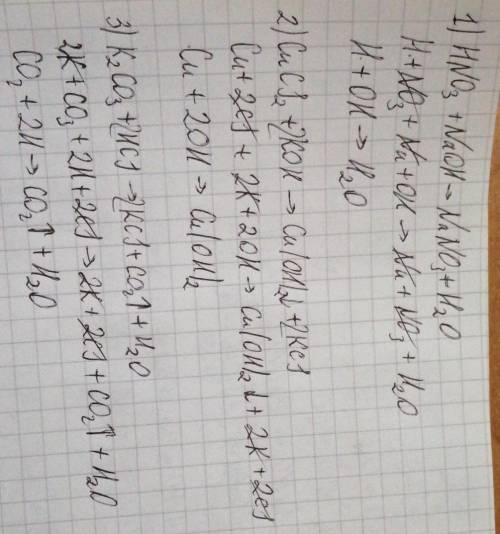 1) HNO₃ + NaOH → NaNO₃ + H₂O
H + NO₃ + Na + OH → Na + NO₃ + H₂O
H + OH → H₂O
2) CuCl₂ + 2KOH → Cu(OH)₂↓ + 2KCl
Cu + 2Cl + 2K + 2OH → Cu(OH)₂↓ + 2K + 2Cl
Cu + 2OH → Cu(OH)₂
3) K₂CO₃ + 2HCl → 2KCl + CO₂↑ + H₂O
2K + CO₃ + 2H + 2Cl → 2K + 2Cl + CO₂↑ + H₂O
CO₃ + 2H → CO₂↑ + H₂O